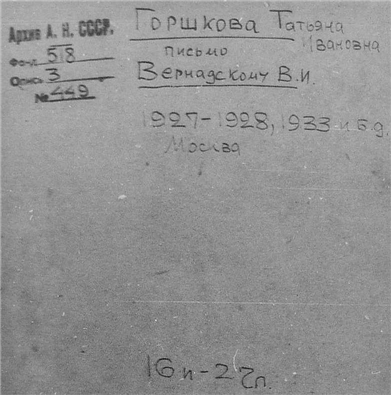 Архив А. Н. СССР.
Фонд 518
Опись 3
№ 449
ГОРШКОВА Татьяна
Ивановна
письмо
ВЕРНАДСКОМУ В.И.
1927-1928, 1933 и б.д.
Москва
16 п-